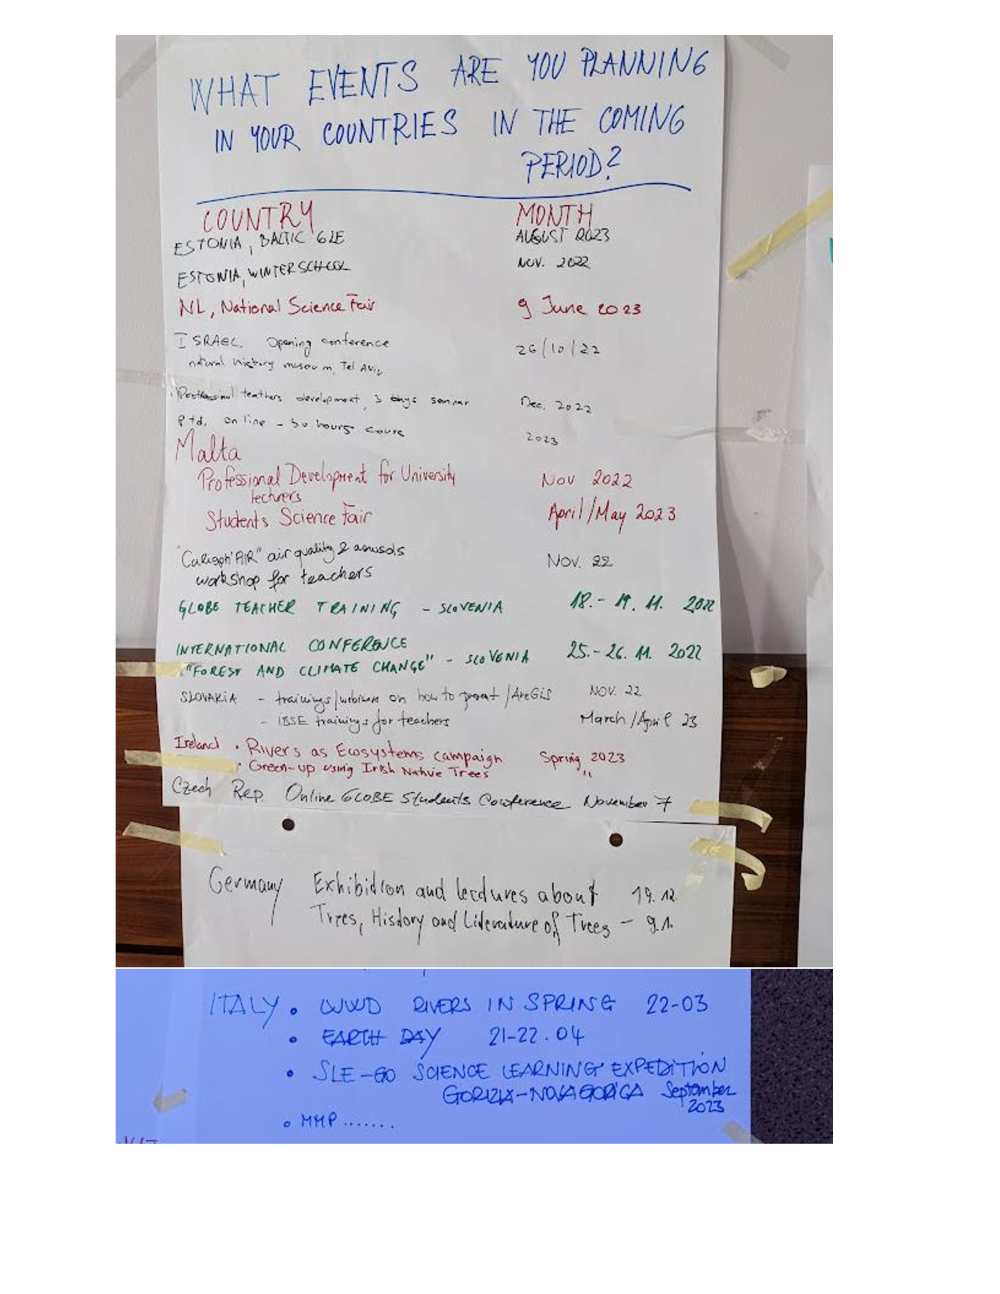 WHAT EVENTS ARE YOU PLANNING
IN YOUR COUNTRIES IN THE COMING
PERIOD?
COUNTRY MONTH
ESTONIA, BALTIC GLE AUGUST 2023
ESTONIA, WINTERSCHOOL NOV. 2022
NL, National Science Fair 9 June 2023
ISRAEL, Opening conference 26/10/22
natural history museum, Tel Aviv
Professional teathers development, 3 days seminar Dec. 2022
Ptd. online - 30 hours course 2023
Malta
Professional Development for University Nov 2022
lecturers
Students Science Fair April/May 2023
"Caliqph'AIR" air quality & aerusols Nov. 22
workshop for teachers
GLOBE TEACHER TRAINING - SLOVENIA 18.- 19. 11. 2022
INTERNATIONAL CONFERENCE 25.-26. 11. 2022
"FOREST AND CLIMATE CHANGE" - SLOVENIA
SLOVAKIA - trainings/webinars on how to present /ArcGis NOV. 22
- IBSE trainings for teachers March/April 23
Ireland • Rivers as Ecosystems campaign Spring 2023
• Green-up using Irish Native Trees "
Czech Rep. Online GLOBE Students Conference November 7
Germany Exhibition and lectures about 19.12.
Trees, History and Literature of Trees - 9.1.
ITALY • WWD RIVERS IN SPRING 22-03
• EARTH DAY 21-22.04
• SLE-GO SCIENCE LEARNING EXPEDITION
GORIZIA-NOVA GORICA September
2023
• MMP.......